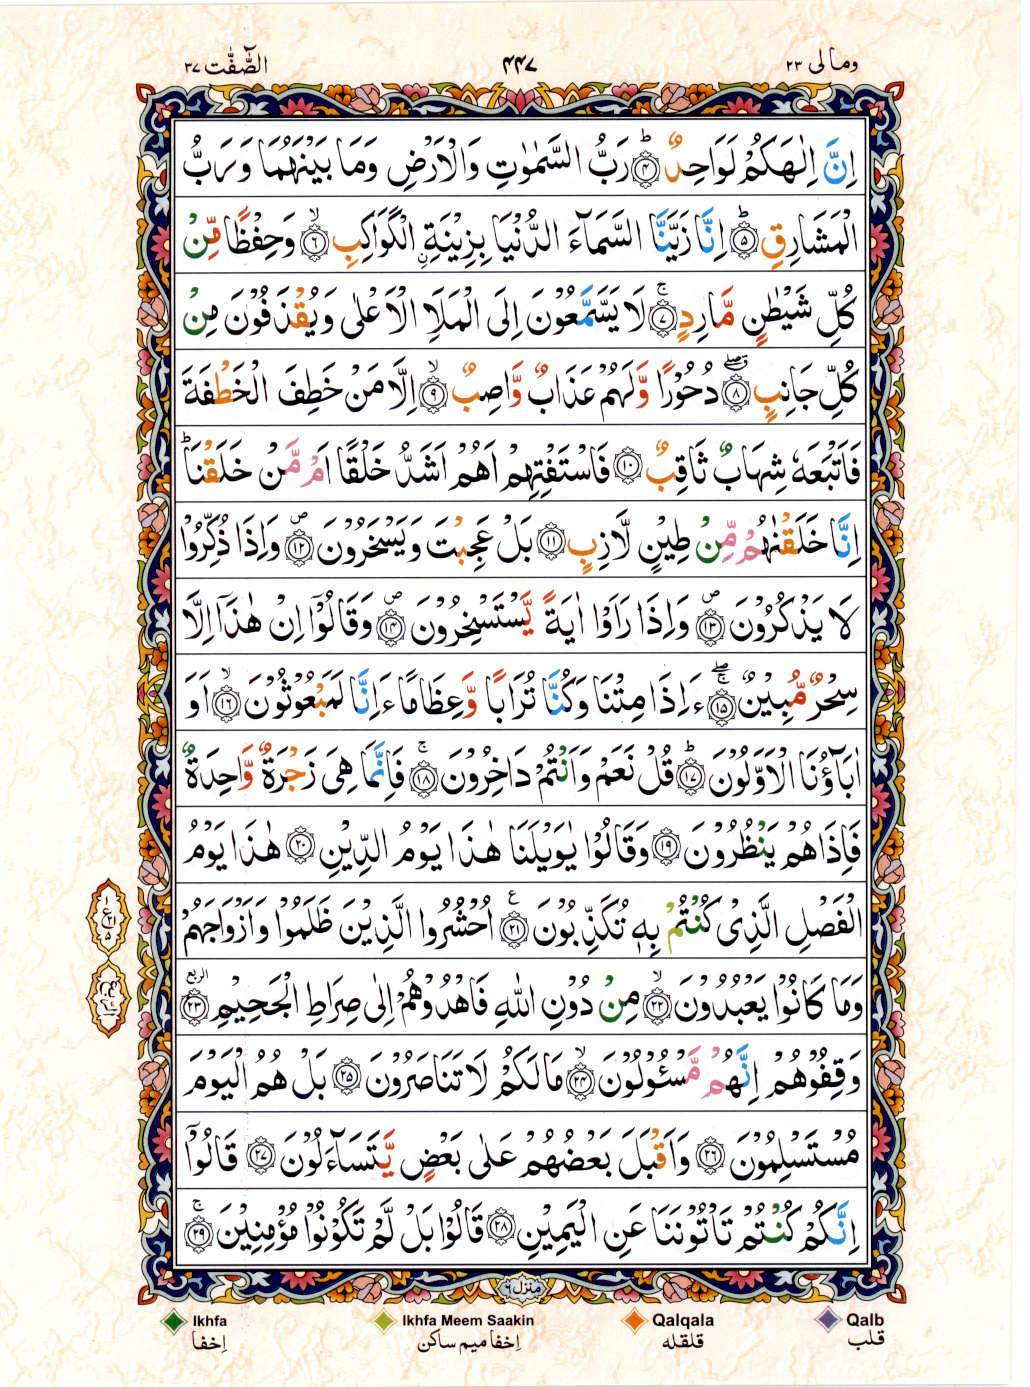 وما لی ۲۳
۴۴۷
الصّٰٓفّٰت ۳۷
اِنَّ اِلٰهَكُمْ لَوَاحِدٌ ؕ﴿۴﴾ رَبُّ السَّمٰوٰتِ وَالْاَرْضِ وَمَا بَيْنَهُمَا وَرَبُّ
الْمَشَارِقِ ؕ﴿۵﴾ اِنَّا زَيَّنَّا السَّمَآءَ الدُّنْيَا بِزِيْنَةِ اۨلْكَوَاكِبِ ۙ﴿۶﴾ وَحِفْظًا مِّنْ
كُلِّ شَيْطٰنٍ مَّارِدٍ ۚ﴿۷﴾ لَا يَسَّمَّعُوْنَ اِلَى الْمَلَاِ الْاَعْلٰى وَيُقْذَفُوْنَ مِنْ
كُلِّ جَانِبٍ ۖ﴿۸﴾ دُحُوْرًا وَّلَهُمْ عَذَابٌ وَّاصِبٌ ۙ﴿۹﴾ اِلَّا مَنْ خَطِفَ الْخَطْفَةَ
فَاَتْبَعَهٗ شِهَابٌ ثَاقِبٌ ﴿۱۰﴾ فَاسْتَفْتِهِمْ اَهُمْ اَشَدُّ خَلْقًا اَمْ مَّنْ خَلَقْنَا ؕ
اِنَّا خَلَقْنٰهُمْ مِّنْ طِيْنٍ لَّازِبٍ ﴿۱۱﴾ بَلْ عَجِبْتَ وَيَسْخَرُوْنَ ۪﴿۱۲﴾ وَاِذَا ذُكِّرُوْا
لَا يَذْكُرُوْنَ ۪﴿۱۳﴾ وَاِذَا رَاَوْا اٰيَةً يَّسْتَسْخِرُوْنَ ۪﴿۱۴﴾ وَقَالُوْۤا اِنْ هٰذَاۤ اِلَّا
سِحْرٌ مُّبِيْنٌ ۚۖ﴿۱۵﴾ ءَاِذَا مِتْنَا وَكُنَّا تُرَابًا وَّعِظَامًا ءَاِنَّا لَمَبْعُوْثُوْنَ ۙ﴿۱۶﴾ اَوَ
اٰبَآؤُنَا الْاَوَّلُوْنَ ؕ﴿۱۷﴾ قُلْ نَعَمْ وَاَنْتُمْ دَاخِرُوْنَ ۚ﴿۱۸﴾ فَاِنَّمَا هِیَ زَجْرَةٌ وَّاحِدَةٌ
فَاِذَا هُمْ يَنْظُرُوْنَ ﴿۱۹﴾ وَقَالُوْا يٰوَيْلَنَا هٰذَا يَوْمُ الدِّيْنِ ﴿۲۰﴾ هٰذَا يَوْمُ
الْفَصْلِ الَّذِیْ كُنْتُمْ بِهٖ تُكَذِّبُوْنَ ﴿۲۱﴾ ع اُحْشُرُوا الَّذِيْنَ ظَلَمُوْا وَاَزْوَاجَهُمْ
وَمَا كَانُوْا يَعْبُدُوْنَ ۙ﴿۲۲﴾ مِنْ دُوْنِ اللّٰهِ فَاهْدُوْهُمْ اِلٰى صِرَاطِ الْجَحِيْمِ ﴿۲۳﴾ الربع
وَقِفُوْهُمْ اِنَّهُمْ مَّسْـُٔوْلُوْنَ ۙ﴿۲۴﴾ مَا لَكُمْ لَا تَنَاصَرُوْنَ ﴿۲۵﴾ بَلْ هُمُ الْيَوْمَ
مُسْتَسْلِمُوْنَ ﴿۲۶﴾ وَاَقْبَلَ بَعْضُهُمْ عَلٰى بَعْضٍ يَّتَسَآءَلُوْنَ ﴿۲۷﴾ قَالُوْۤا
اِنَّكُمْ كُنْتُمْ تَاْتُوْنَنَا عَنِ الْيَمِيْنِ ﴿۲۸﴾ قَالُوْا بَلْ لَّمْ تَكُوْنُوْا مُؤْمِنِيْنَ ۚ﴿۲۹﴾
منزل ۶
Ikhfa
Ikhfa Meem Saakin
Qalqala
Qalb
اِخفا
اِخفا میم ساکن
قلقله
قلب